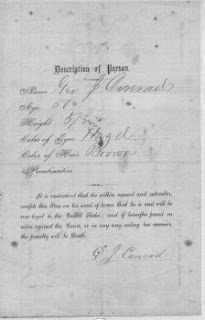 Description of Person.
Name Geo J Conrad
Age 50
Height
Color of Eyes Hazel
Color of Hair Brown
Peculiarities
It is understood that the within named and subscriber,
accepts this Pass on his word of honor that he is and will be
ever loyal to the United States; and if hereafter found in
arms against the Union, or in any way aiding her enemies,
the penalty will be Death.
G J Conrad